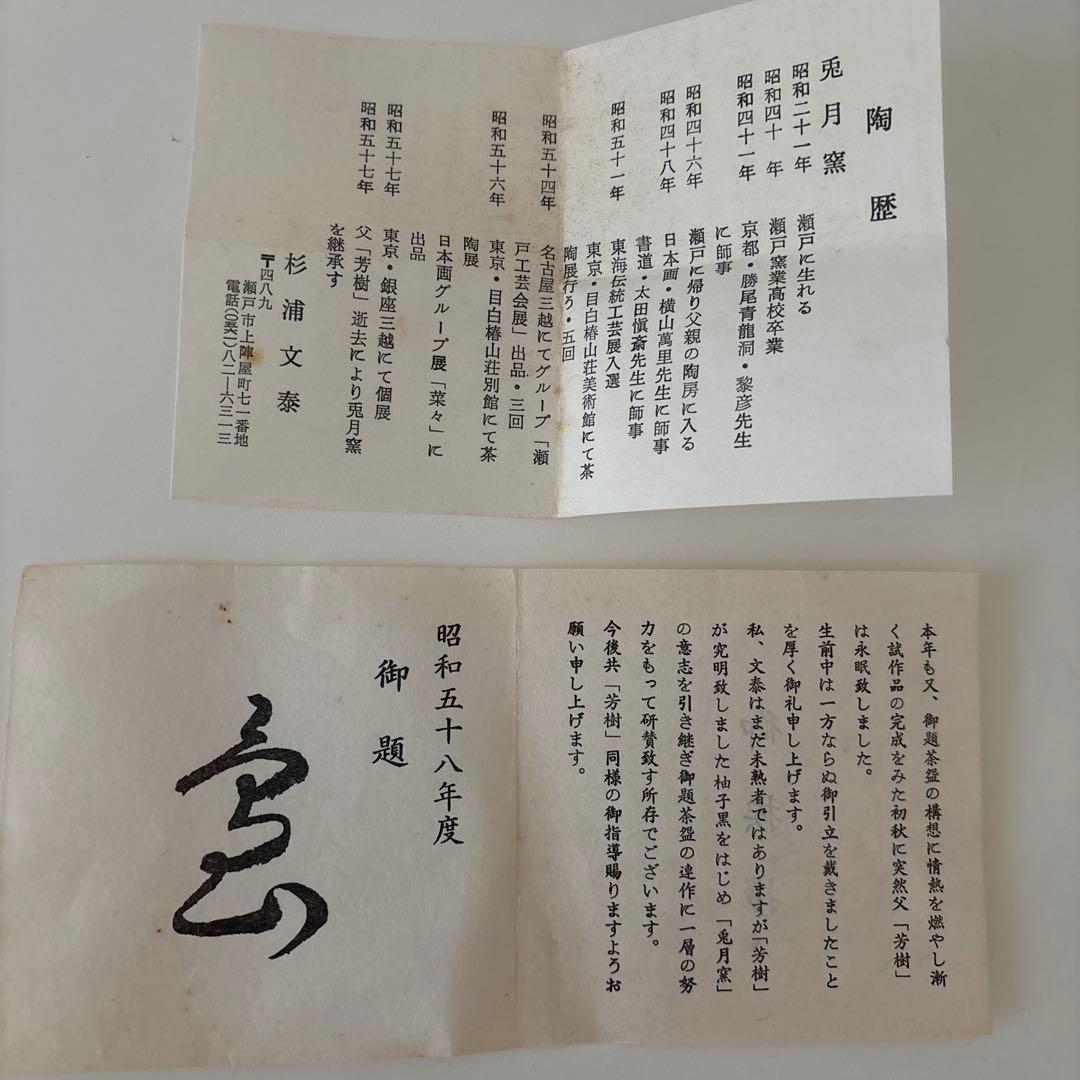 陶歴
兎月窯
昭和二十一年 瀬戸に生れる
昭和四十 年 瀬戸窯業高校卒業
昭和四十一年 京都・勝尾青龍洞・黎彦先生
に師事
昭和四十六年 瀬戸に帰り父親の陶房に入る
昭和四十八年 日本画・横山萬里先生に師事
書道・太田愼斎先生に師事
昭和五十一年 東海伝統工芸展入選
東京・目白椿山荘美術館にて茶
陶展行う・五回
昭和五十四年 名古屋三越にてグループ「瀬
戸工芸会展」出品・三回
昭和五十六年 東京・目白椿山荘別館にて茶
陶展
日本画グループ展「菜々」に
出品
昭和五十七年 東京・銀座三越にて個展
昭和五十七年 父「芳樹」逝去により兎月窯
を継承す
杉浦文泰
〒四八九
瀬戸市上陣屋町七一番地
電話(〇五六一)八二―六三一三
本年も又、御題茶盌の構想に情熱を燃やし漸
く試作品の完成をみた初秋に突然父「芳樹」
は永眠致しました。
生前中は一方ならぬ御引立を戴きましたこと
を厚く御礼申し上げます。
私、文泰はまだ未熟者ではありますが「芳樹」
が究明致しました柚子黒をはじめ「兎月窯」
の意志を引き継ぎ御題茶盌の連作に一層の努
力をもって研賛致す所存でございます。
今後共「芳樹」同様の御指導賜りますようお
願い申し上げます。
昭和五十八年度
御題
島